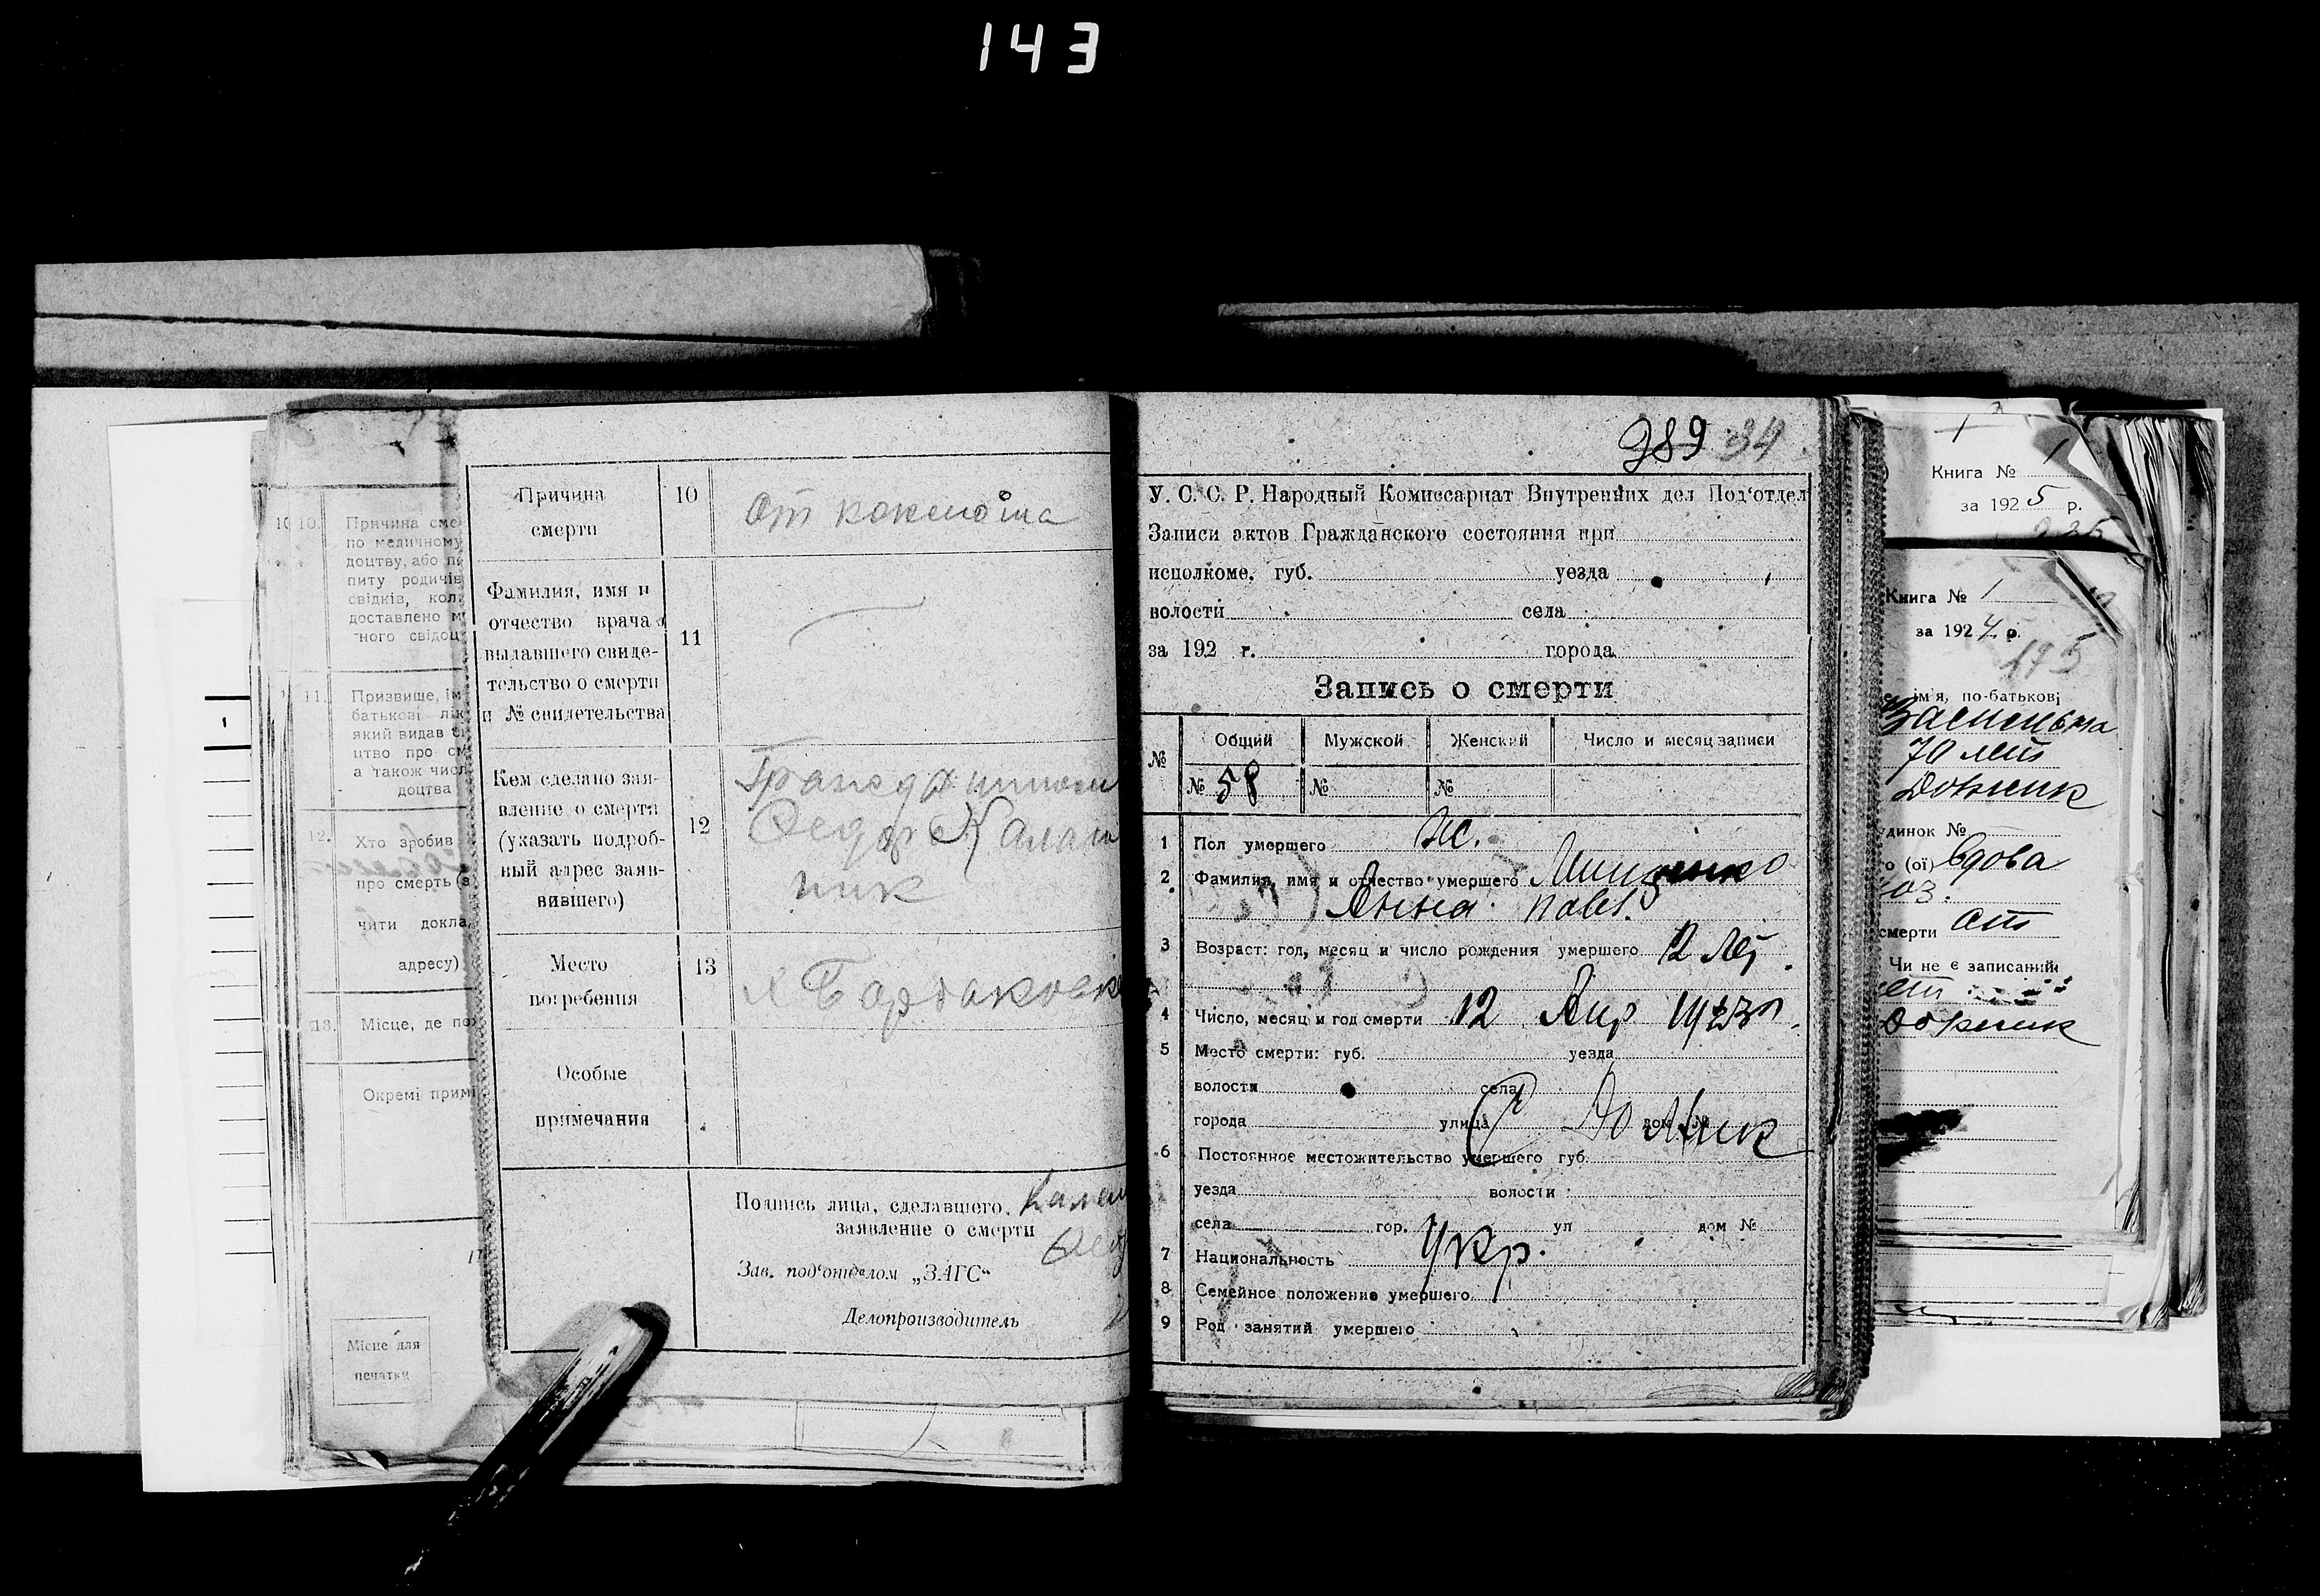 143
10.
Причина сме
по медичному
доцтву, або п
питу родичів
свідків, кол
доставлено м
ного свідоц
11.
Призвище, ім
батькові лік
який видав
цтво про см
а також числ
доцтва
12.
Хто зробив
про смерть (з
чити докла
адресу)
13.
Місце, де по
Окремі примі
Місце для
печатки
Причина
смерти
10
от коклюша
Фамилия, имя и
отчество врача
выдавшего свиде-
тельство о смерти
и № свидетельства
11
Кем сделано зая-
вление о смерти
(указать подроб-
ный адрес заяв-
вившего)
12
Федор Калаш
ник
Место
погребения
13
Особые
примечания
Подпись лица, сделавшего
заявление о смерти
Зав. под'отделом „ЗАГС“
Делопроизводитель
389 34
У. С. С. Р. Народный Комиссариат Внутренних дел Под'отдел
Записи актов Гражданского состояния при
исполкоме, губ. уезда
волости села
за 192 г. города
Запись о смерти
№ Общий Мужской Женский Число и месяц записи
№ 58 № №
1 Пол умершего ж.
2 Фамилия, имя и отчество умершего
Анна Павл.
3 Возраст: год, месяц и число рождения умершего 12 лет
4 Число, месяц и год смерти 12 Апр 1923 г.
5 Место смерти: губ. уезда
волости села
города улица дом №
6 Постоянное местожительство умершего губ.
уезда волости
села гор. ул дом №
7 Национальность Укр.
8 Семейное положение умершего
9 Род занятий умершего
Книга № 1
за 1925 р.
Книга № 1
за 1924 р.
175
ім'я, по-батькові
70 лет
динок №
о (ої) вдова
смерти от
Чи не є записаний